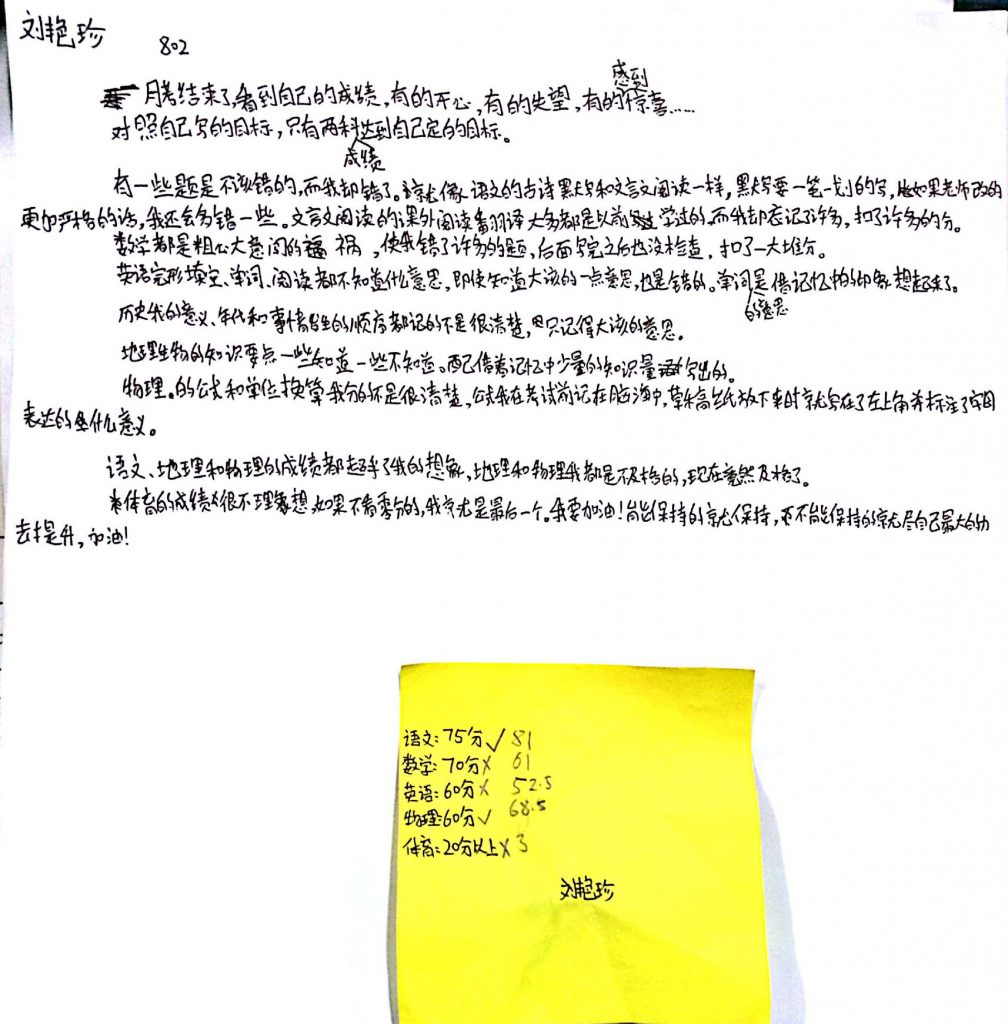 刘艳珍
802
月考结束了,看到自己的成绩,有的开心,有的失望,有的感到惊喜......
对照自己写的目标,只有两科成绩达到自己定的目标。
有一些题是不该错的,而我却错了。就像语文的古诗默写和文言文阅读一样,默写要一笔一划的写,如果老师改的
更加严格的话,我还会多错一些。文言文阅读的课外阅读翻译大多都是以前学过的,而我却忘记了许多,扣了许多的分。
数学都是粗心大意闯的祸,使我错了许多的题,后面写完之后也没检查,扣了一大堆分。
英语完形填空、单词、阅读都不知道什么意思,即使知道大该的一点意思,也是错的。单词的意思是借记忆中的印象想起来了。
历史我的意义、年代和事情发生的顺序都记的不是很清楚,只记得大该的意思。
地理生物的知识要点一些知道一些不知道。借着记忆中少量的知识量写出的。
物理。的公式和单位换算我分的还是很清楚,公式我在考试前记在脑海中,草稿纸放下来时就写在了左上角并标注了
表达的是什么意义。
语文、地理和物理的成绩都超乎了我的想象,地理和物理我都是不及格的,现在竟然及格了。
体育的成绩很不理想,如果不看零分的,我就是最后一个。我要加油!能保持的就保持,不能保持的就尽自己最大的
去提升,加油!
语文:75分√ 81
数学:70分× 61
英语:60分× 52.5
物理:60分√ 68.5
体育:20分以上× 3
刘艳珍